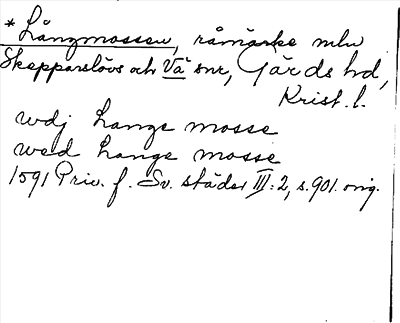 * Långmossen, råmärke mln
Skepparslövs och Vä snr, Gärds hd,
Krist. l.
wdj Lange mosse
wed Lange mosse
1591 Priv. f. Sv. städer III: 2, s. 901. orig.